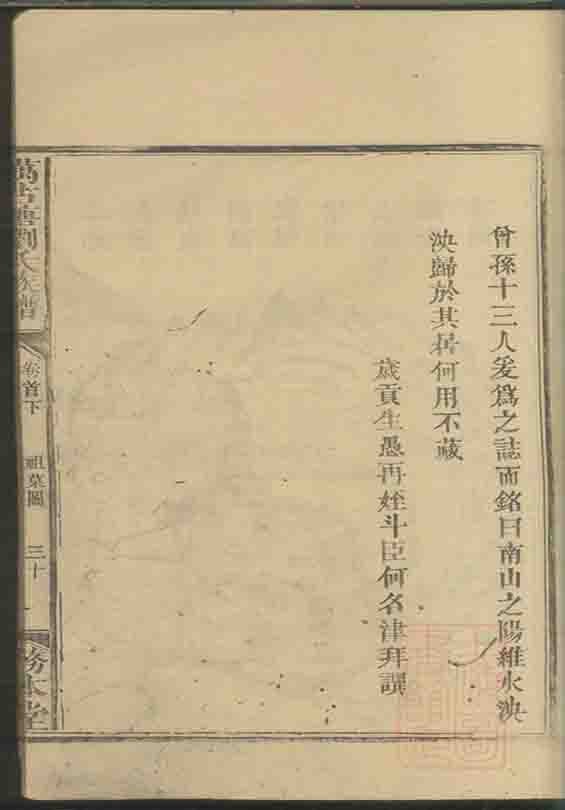 曾孫十三人爰爲之誌而銘曰南山之陽維水泱
泱歸於其居何用不藏
歲貢生愚再姪斗臣何名津拜譔
萬古塘劉氏族譜
卷首下
祖塋圖
三十
務本堂